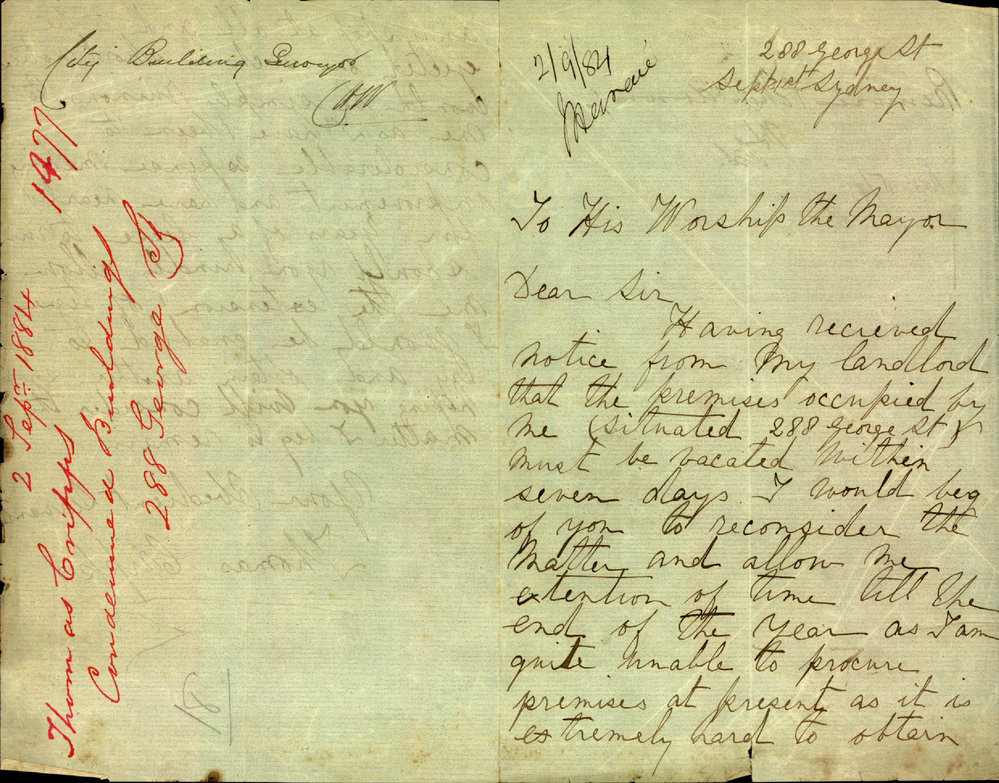 City Building Surveyor
1477
2 Sepr 1884
Thomas Cripps
Condemned Buildings
288 George St
2/9/84
288 George St
Sept 1st Sydney
To His Worship the Mayor
Dear Sir
Having recieved
notice from My landlord
that the premises occupied by
me (situated 288 George St)
must be vacated within
seven days I would beg
of you to reconsider the
Matter and allow me
extention of time till the
end of the year as I am
quite unable to procure
premises at present as it is
extremely hard to obtain